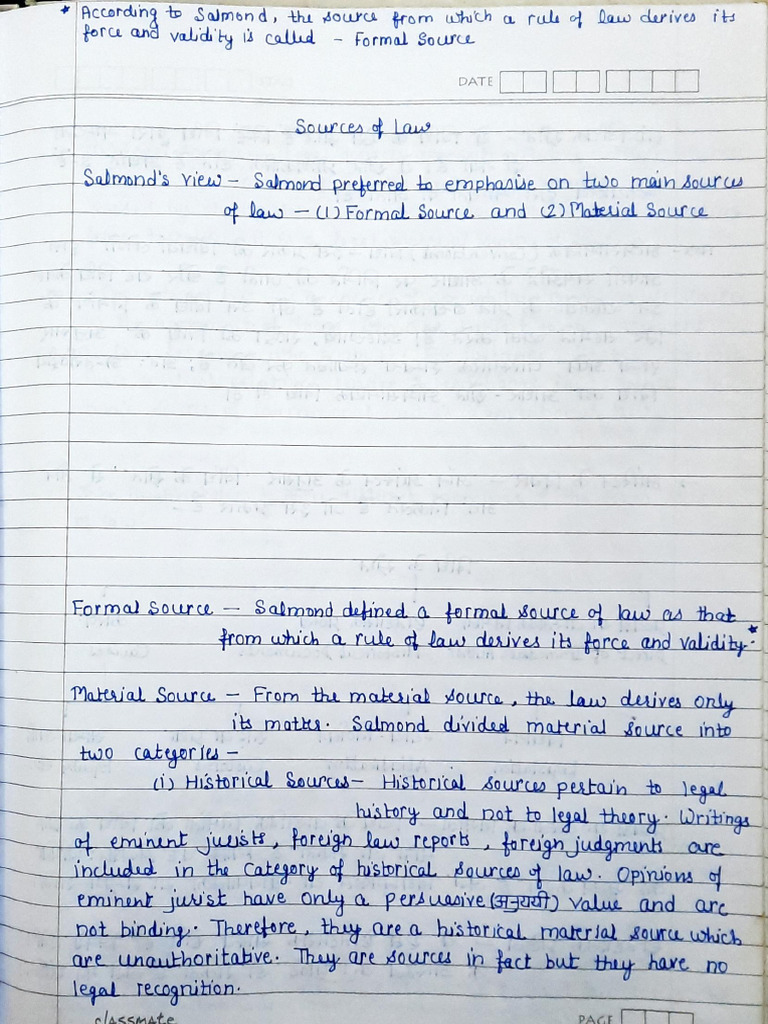 * According to Salmond, the source from which a rule of law derives its
force and validity is called - Formal Source
DATE
Sources of Law
Salmond's view - Salmond preferred to emphasise on two main sources
of law - (1) Formal Source and (2) Material Source
Formal Source - Salmond defined a formal source of law as that
from which a rule of law derives its force and validity.*
Material Source - From the material source, the law derives only
its matter. Salmond divided material source into
two categories -
(i) Historical Sources - Historical sources pertain to legal
history and not to legal theory. Writings
of eminent jurists, foreign law reports, foreign judgments are
included in the category of historical sources of law. Opinions of
eminent jurist have only a persuasive (अनुनयी) value and are
not binding. Therefore, they are a historical material source which
are unauthoritative. They are sources in fact but they have no
legal recognition.
classmate
PAGE